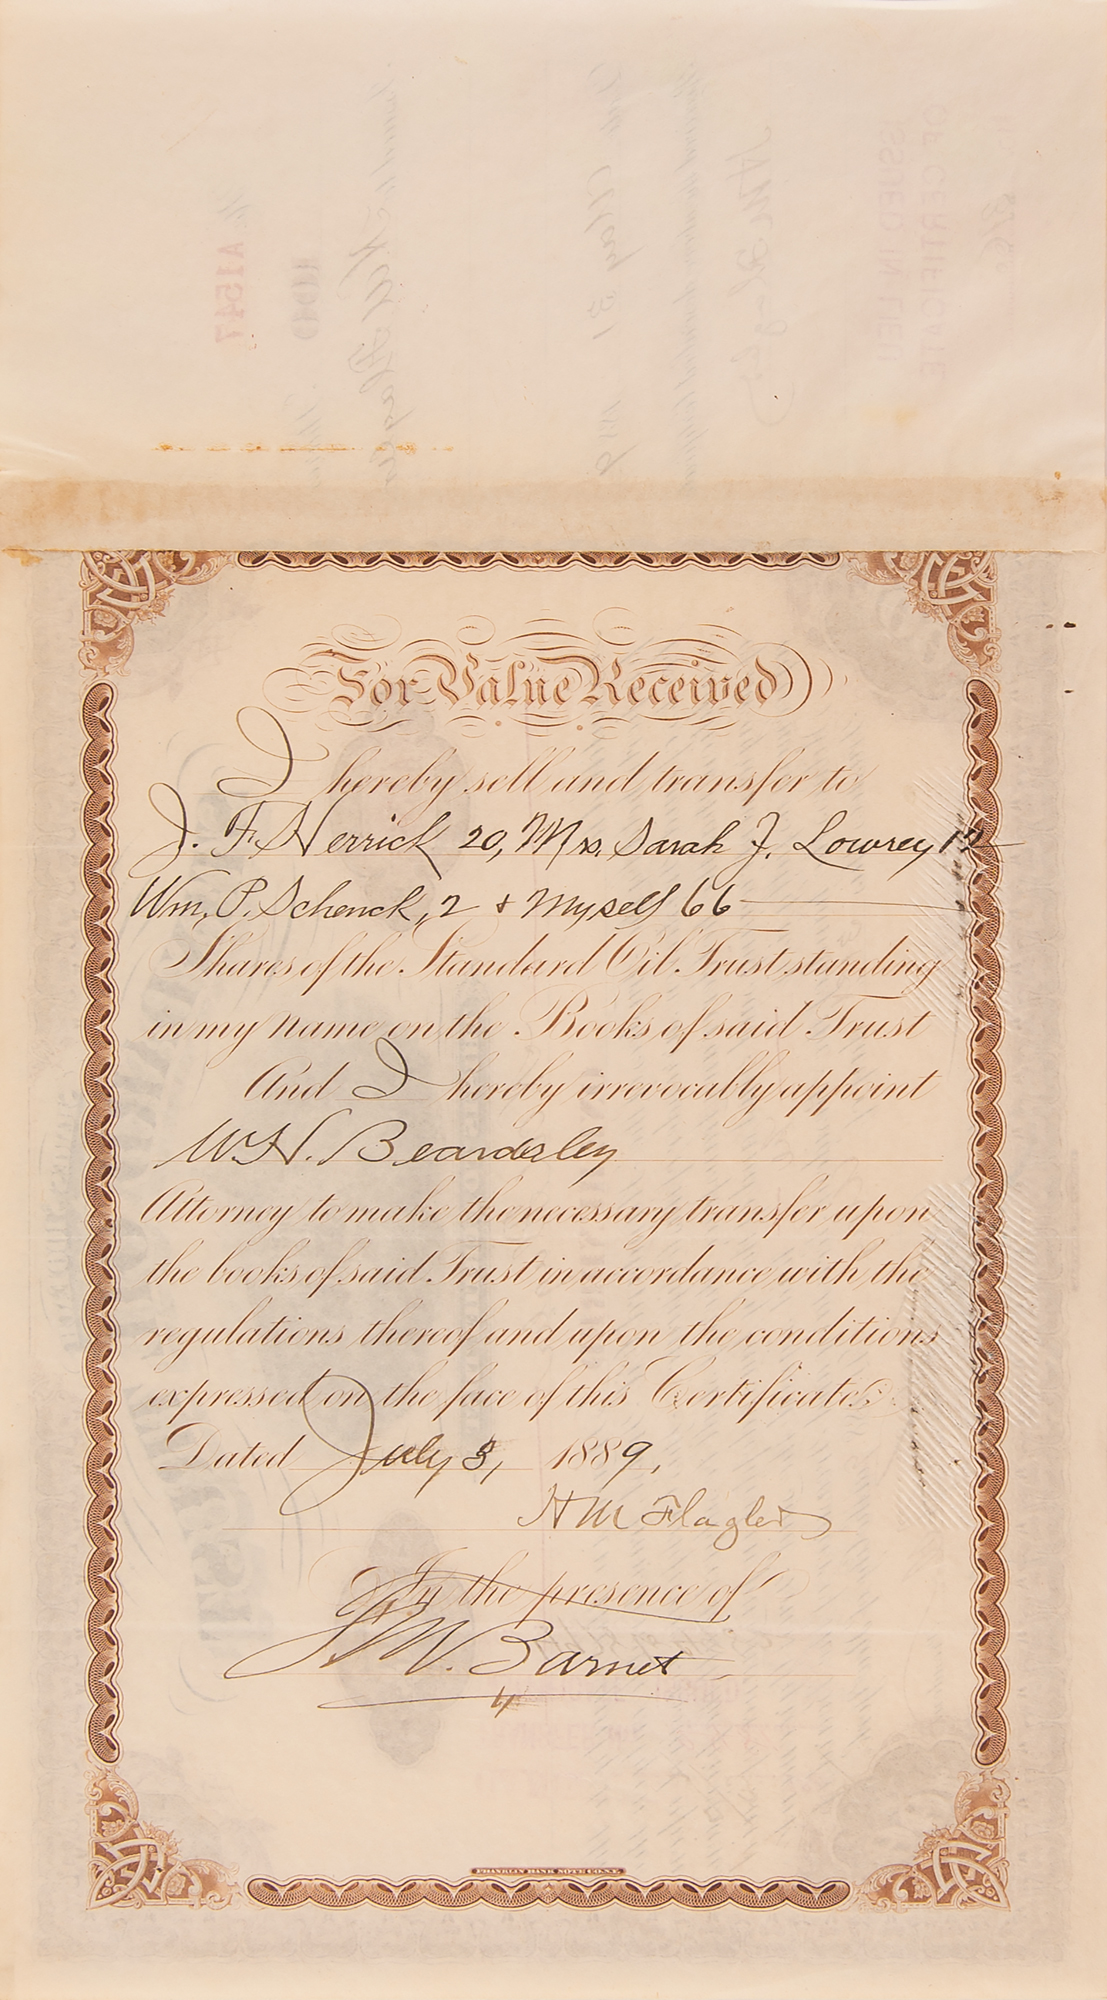 For Value Received
I hereby sell and transfer to
J. F. Herrick 20, Mrs. Sarah J. Lowrey 12
Wm, P. Schenck, 2 & Myself 66
Shares of the Standard Oil Trust standing
in my name on the Books of said Trust
And I hereby irrevocably appoint
W. H. Beardsley
Attorney to make the necessary transfer upon
the books of said Trust in accordance with the
regulations thereof and upon the conditions
expressed on the face of this Certificate
Dated July 3, 1889,
H M Flagler
In the presence of
W. Barnet
FRANKLIN BANK NOTE CO. N.Y.
A1547
ISSUED IN LIEU
OF CERTIFICATE